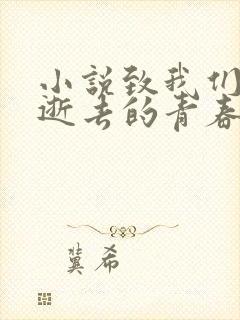 小説致我们
逝去的青春
冀希